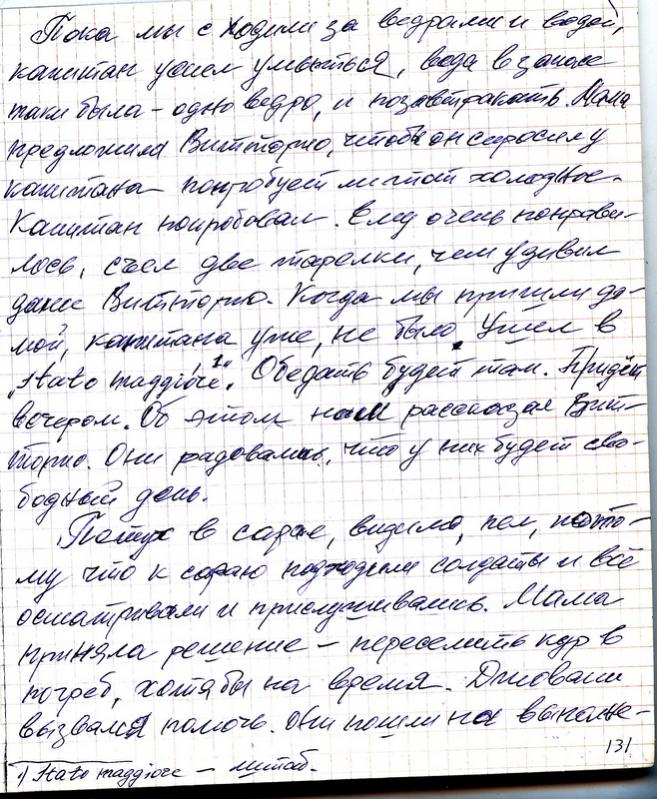 Пока мы сходили за ведрами и водой,
капитан успел умыться, вода в запасе
таки была – одно ведро, и позавтракать. Мама
предложила Витторио, чтобы он спросил у
капитана попробует ли тот холодное.
Капитан попробовал. Ему очень понрави-
лось, съел две тарелки, чем удивил
даже Витторио. Когда мы пришли до-
мой, капитана уже, не было. Ушел в
„Stato maggiore"¹⁾. Обедать будет там. Придёт
вечером. Об этом нам рассказал Вит-
торио. Они радовались, что у них будет сво-
бодный день.
Петух в сарае, видимо, пел, пото-
му что к сараю подходили солдаты и всё
осматривали и прислушивались. Мама
приняла решение – переселить кур в
погреб, хотя бы на время. Джовани
вызвался помочь. Они пошли на
131
1) Stato maggiore – штаб.